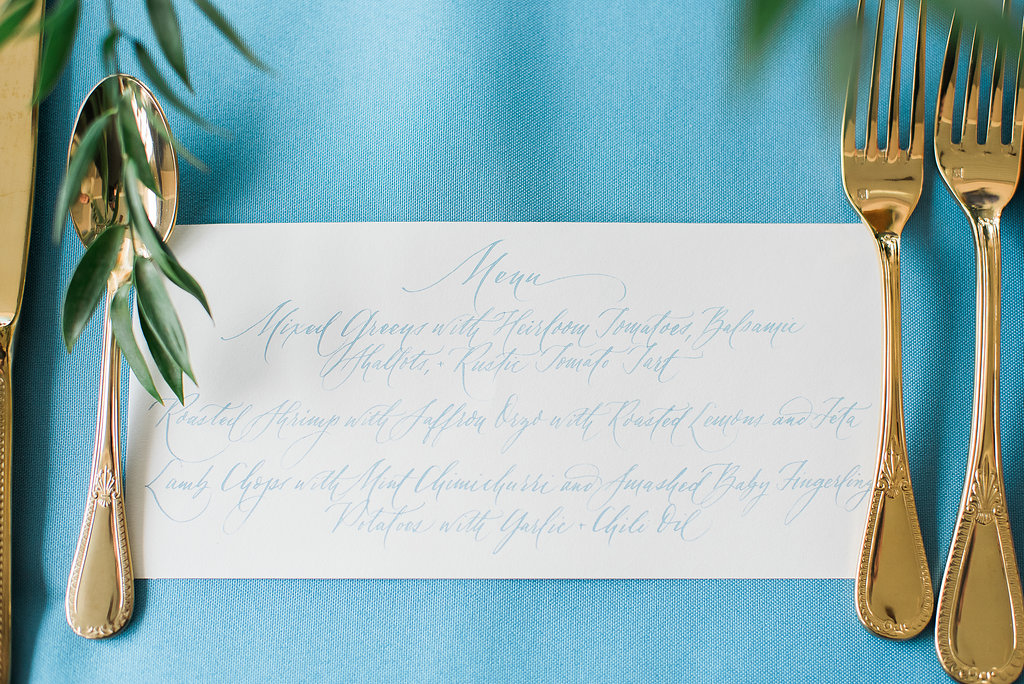 Menu
Mixed Greens with Heirloom Tomatoes, Balsamic
Shallots, + Rustic Tomato Tart
Roasted Shrimp with Saffron Orzo with Roasted Lemons and Feta
Lamb Chops with Mint Chimichurri and Smashed Baby Fingerling
Potatoes with Garlic + Chili Oil